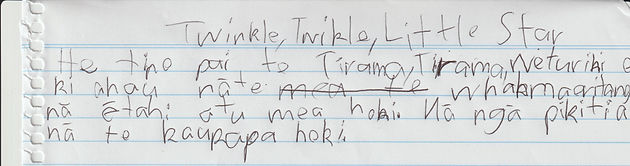 Twinkle, Twikle, Little Star
He tino pai te Tirama, Tirama, Weturiki e
ki ahau nāte mea te whakmaaritanga
nā ētahi atu mea hoki. Nā ngā pikitia
nā te kaupapa hoki.